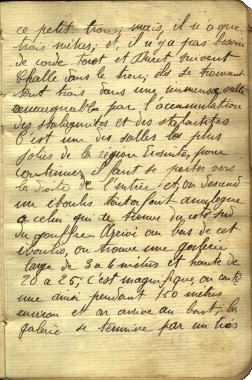 ce petit trou; mais, il n'a que
trois mètres; et, il n'y a pas besoin
de corde. Foret et Biret suivent
Challe dans le trou; ils se trouvent
tous trois dans une immense salle
remarquable par l'accumulation
des stalagmites et des stalactites
C'est une des salles les plus
jolies de la région. Ensuite, pour
continuer, il faut se porter vers
la droite de l'entrée et, on descend
un éboulis tout à fait analogue
à celui qui se trouve au sud
du gouffre. Arrivé au bas de cet
éboulis, on trouve une galerie
large de 3 à 6 mètres et haute de
20 à 25; c'est magnifique, on
ainsi pendant 150 mètres
environ et on arrive au bout; la
galerie se termine par un très